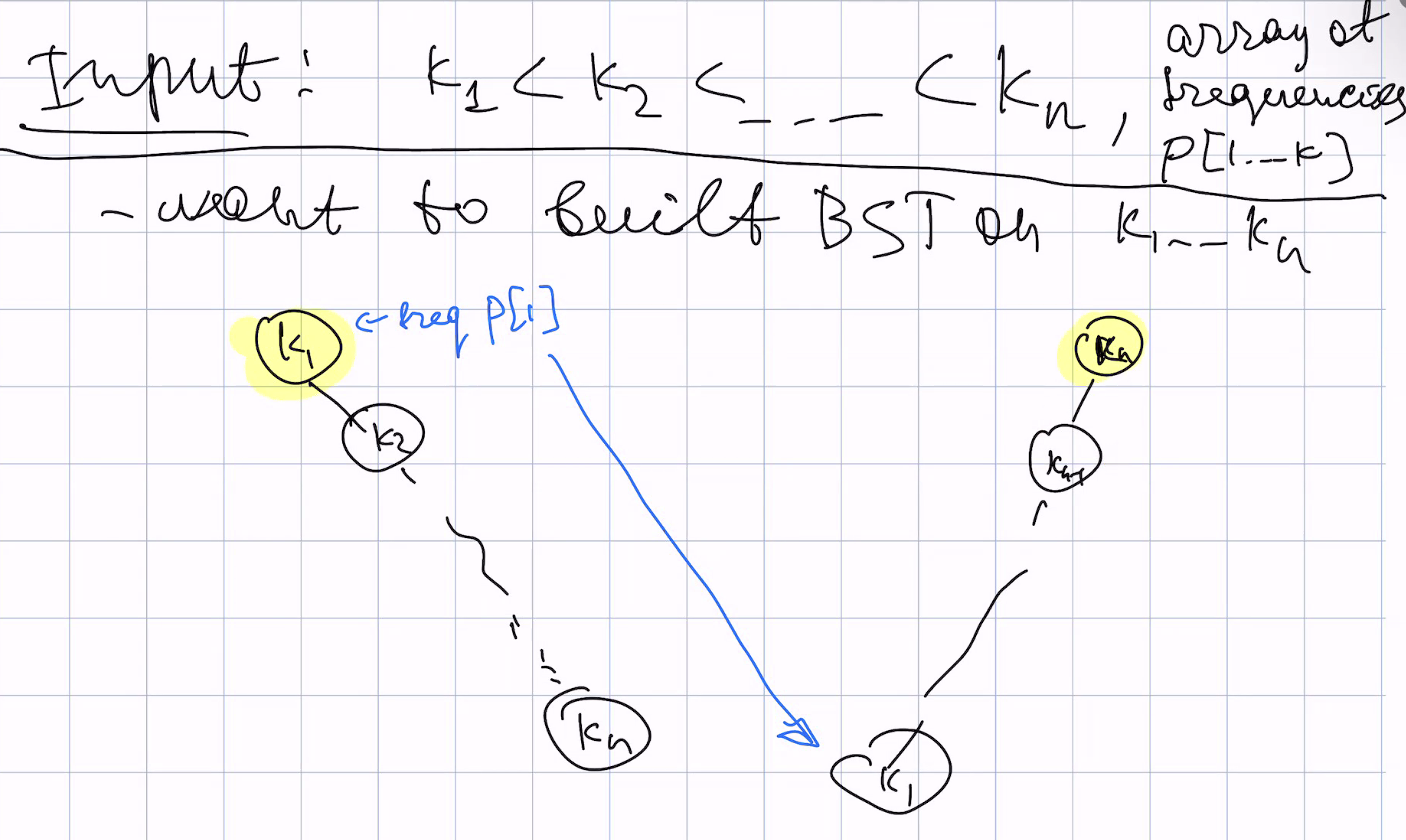 Input: k₁ < k₂ < _ _ _ < kₙ, array of
frequencies
P[1.._k]
- want to built BST on k₁_ _ kₙ
k₁ ← freq P[1]
kₙ
k₂
kₙ₋₁
kₙ
k₁